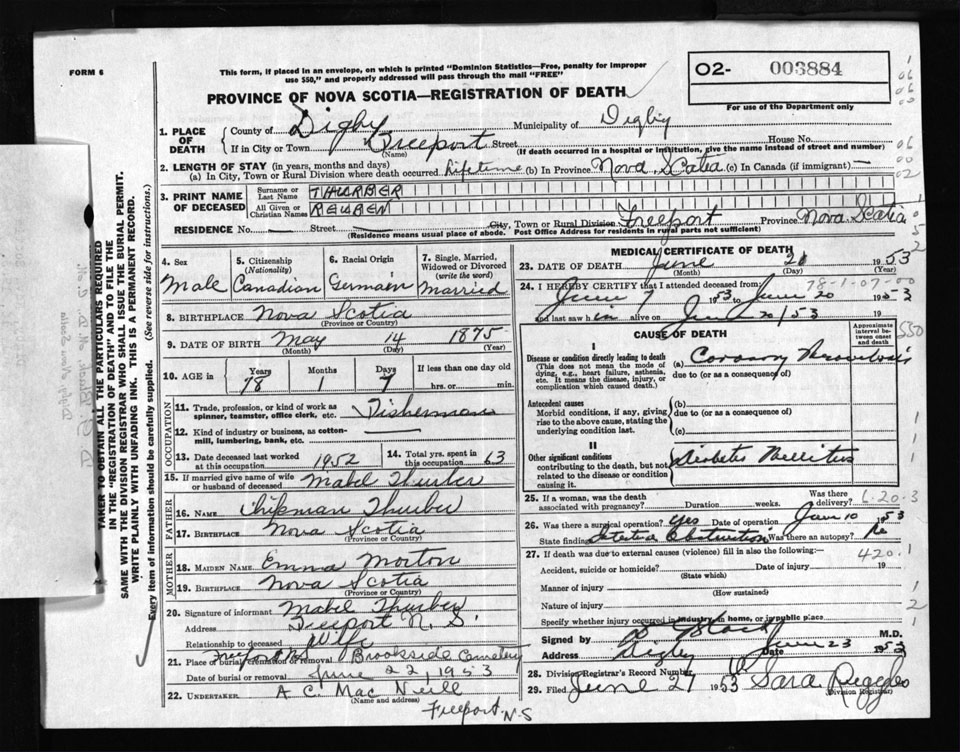 FORM 6
This form, if placed in an envelope, on which is printed "Dominion Statistics—Free, penalty for improper
use $50," and properly addressed will pass through the mail "FREE"
O2- 003884
For use of the Department only
PROVINCE OF NOVA SCOTIA—REGISTRATION OF DEATH
1. PLACE OF DEATH { County of Digby Municipality of Digby
If in City or Town Freeport (Name) Street House No.
(If death occurred in a hospital or institution, give the name instead of street and number)
2. LENGTH OF STAY (in years, months and days)
(a) In City, Town or Rural Division where death occurred Lifetime (b) In Province Nova Scotia (c) In Canada (if immigrant) —
3. PRINT NAME OF DECEASED { Surname or Last Name THURBER
All Given or Christian Names REUBEN
RESIDENCE No. — Street — City, Town or Rural Division Freeport Province Nova Scotia
(Residence means usual place of abode. Post Office Address for residents in rural parts not sufficient)
4. Sex Male
5. Citizenship (Nationality) Canadian
6. Racial Origin Germain
7. Single, Married, Widowed or Divorced (write the word) Married
8. BIRTHPLACE Nova Scotia
(Province or Country)
9. DATE OF BIRTH May 14 1875
(Month) (Day) (Year)
10. AGE in { Years 78 Months 1 Days 7 If less than one day old
hrs. or min.
OCCUPATION
11. Trade, profession, or kind of work as spinner, teamster, office clerk, etc. Fisherman
12. Kind of industry or business, as cotton-mill, lumbering, bank, etc. —
13. Date deceased last worked at this occupation 1952
14. Total yrs. spent in this occupation 63
15. If married give name of wife or husband of deceased Mabel Thurber
FATHER
16. NAME Chipman Thurber
17. BIRTHPLACE Nova Scotia
(Province or Country)
MOTHER
18. MAIDEN NAME Emma Morton
19. BIRTHPLACE Nova Scotia
(Province or Country)
20. Signature of informant Mabel Thurber
Address Freeport N. S.
Relationship to deceased Wife
21. Place of burial, cremation or removal Freeport NS Brookside Cemetery
Date of burial or removal June 22, 1953
22. UNDERTAKER A C. Mac Neill
(Name and address)
Freeport. N.S
MEDICAL CERTIFICATE OF DEATH
23. DATE OF DEATH June 21 1953
(Month) (Day) (Year)
78-1-07-00
24. I HEREBY CERTIFY that I attended deceased from
June 7 1953 to June 20 1953
and last saw h im alive on June 20/53 19
CAUSE OF DEATH
Approximate interval between onset and death
I
Disease or condition directly leading to death (a) Coronary Thrombosis
(This does not mean the mode of dying, e.g., heart failure, asthenia, etc. It means the disease, injury, or complication which caused death.)
due to (or as a consequence of)
Antecedent causes
Morbid conditions, if any, giving rise to the above cause, stating the underlying condition last.
(b)
due to (or as a consequence of)
(c)
II
Other significant conditions
contributing to the death, but not related to the disease or condition causing it.
Diabetes Mellitus
25. If a woman, was the death associated with pregnancy? Duration weeks. Was there delivery?
6-20-3
26. Was there a surgical operation? Yes Date of operation Jan 10 1953
State findings Intestinal Obstruction Was there an autopsy? No
27. If death was due to external causes (violence) fill in also the following:—
420.1
Accident, suicide or homicide? Date of injury 19
(State which)
Manner of injury
(How sustained)
Nature of injury
Specify whether injury occurred in industry, in home, or in public place
Signed by M.D.
Address Digby Date June 23 1953
28. Division Registrar's Record Number
29. Filed June 27 1953 Sara Riggles
(Division Registrar)
TAKEN TO OBTAIN ALL THE PARTICULARS REQUIRED
IN THE "REGISTRATION OF DEATH" AND TO FILE THE
SAME WITH THE DIVISION REGISTRAR WHO SHALL ISSUE THE BURIAL PERMIT.
WRITE PLAINLY WITH UNFADING INK. THIS IS A PERMANENT RECORD.
Every item of information should be carefully supplied. (See reverse side for instructions.)